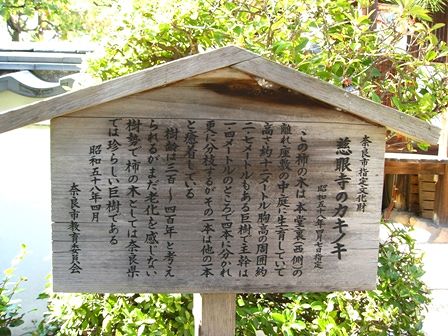 奈良市指定文化財
慈眼寺のカキノキ
昭和五十八年四月七日指定
この柿の木は本堂裏(西側)の
離れ座敷の中庭に生育していて
高さ約十二メートル胸高の周囲約
二・七メートルもある巨樹で主幹は
一・四メートルのところで四本に分かれ
更に分枝するがその一本は他の一本
と癒着している
樹齢は三百〜四百年と考え
られるがまだ老化を感じない
樹勢で柿の木としては奈良県
では珍らしい巨樹である
昭和五十八年四月
奈良市教育委員会